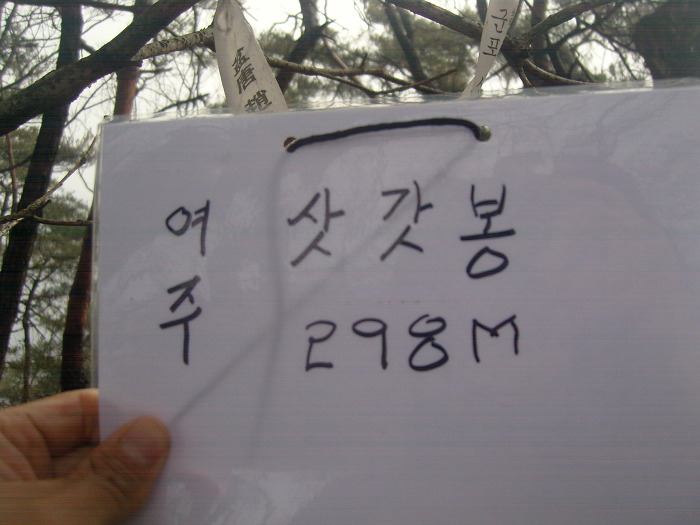 여주 삿갓봉
298M